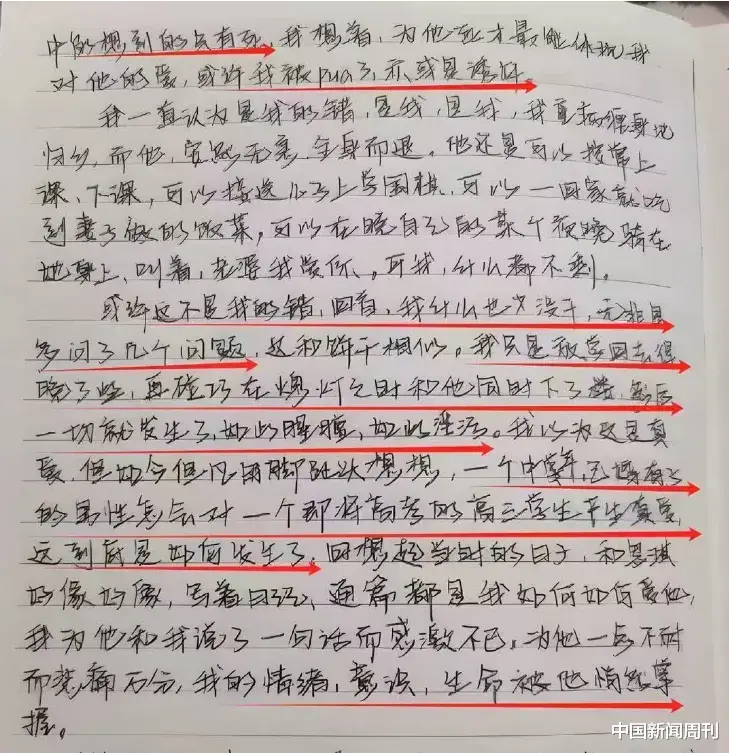 中的想到的只有死，我想着，为他死才最能体现我
对他的爱，或许我被pua了，亦或是诱奸。
我一直认为是我的错，是我，是我，我
归乡，而他，安然无恙，全身而退。他还是可以按常上
课、下课，可以接送儿子上学围棋，可以一回家就吃
到妻子做的饭菜，可以在晚自习的某个夜晚骑在
她身上，叫着，老婆我爱你。可我，什么都不剩。
或许这不是我的错，回首，我什么也没干，无非是
多问了几个问题，这和饼干相似。我只是放学回去得
晚了些，再碰巧在熄灯之时和他同时下了楼，然后
一切就发生了，如此腥膻，如此淫污。我以为这是真
爱，但如今但凡用脚趾头想想，一个中年，已婚有子
的男性怎会对一个即将高考的高三学生产生真爱，
这到底是如何发生了，回想起当时的日子，和思琪
好像好像，写着日记，通篇都是我如何如何爱他，
我为他和我说了一句话而感激不已，为他一点不耐
而悲痛万分，我的情绪，意识，生命被他悄然掌
握。
中国新闻周刊